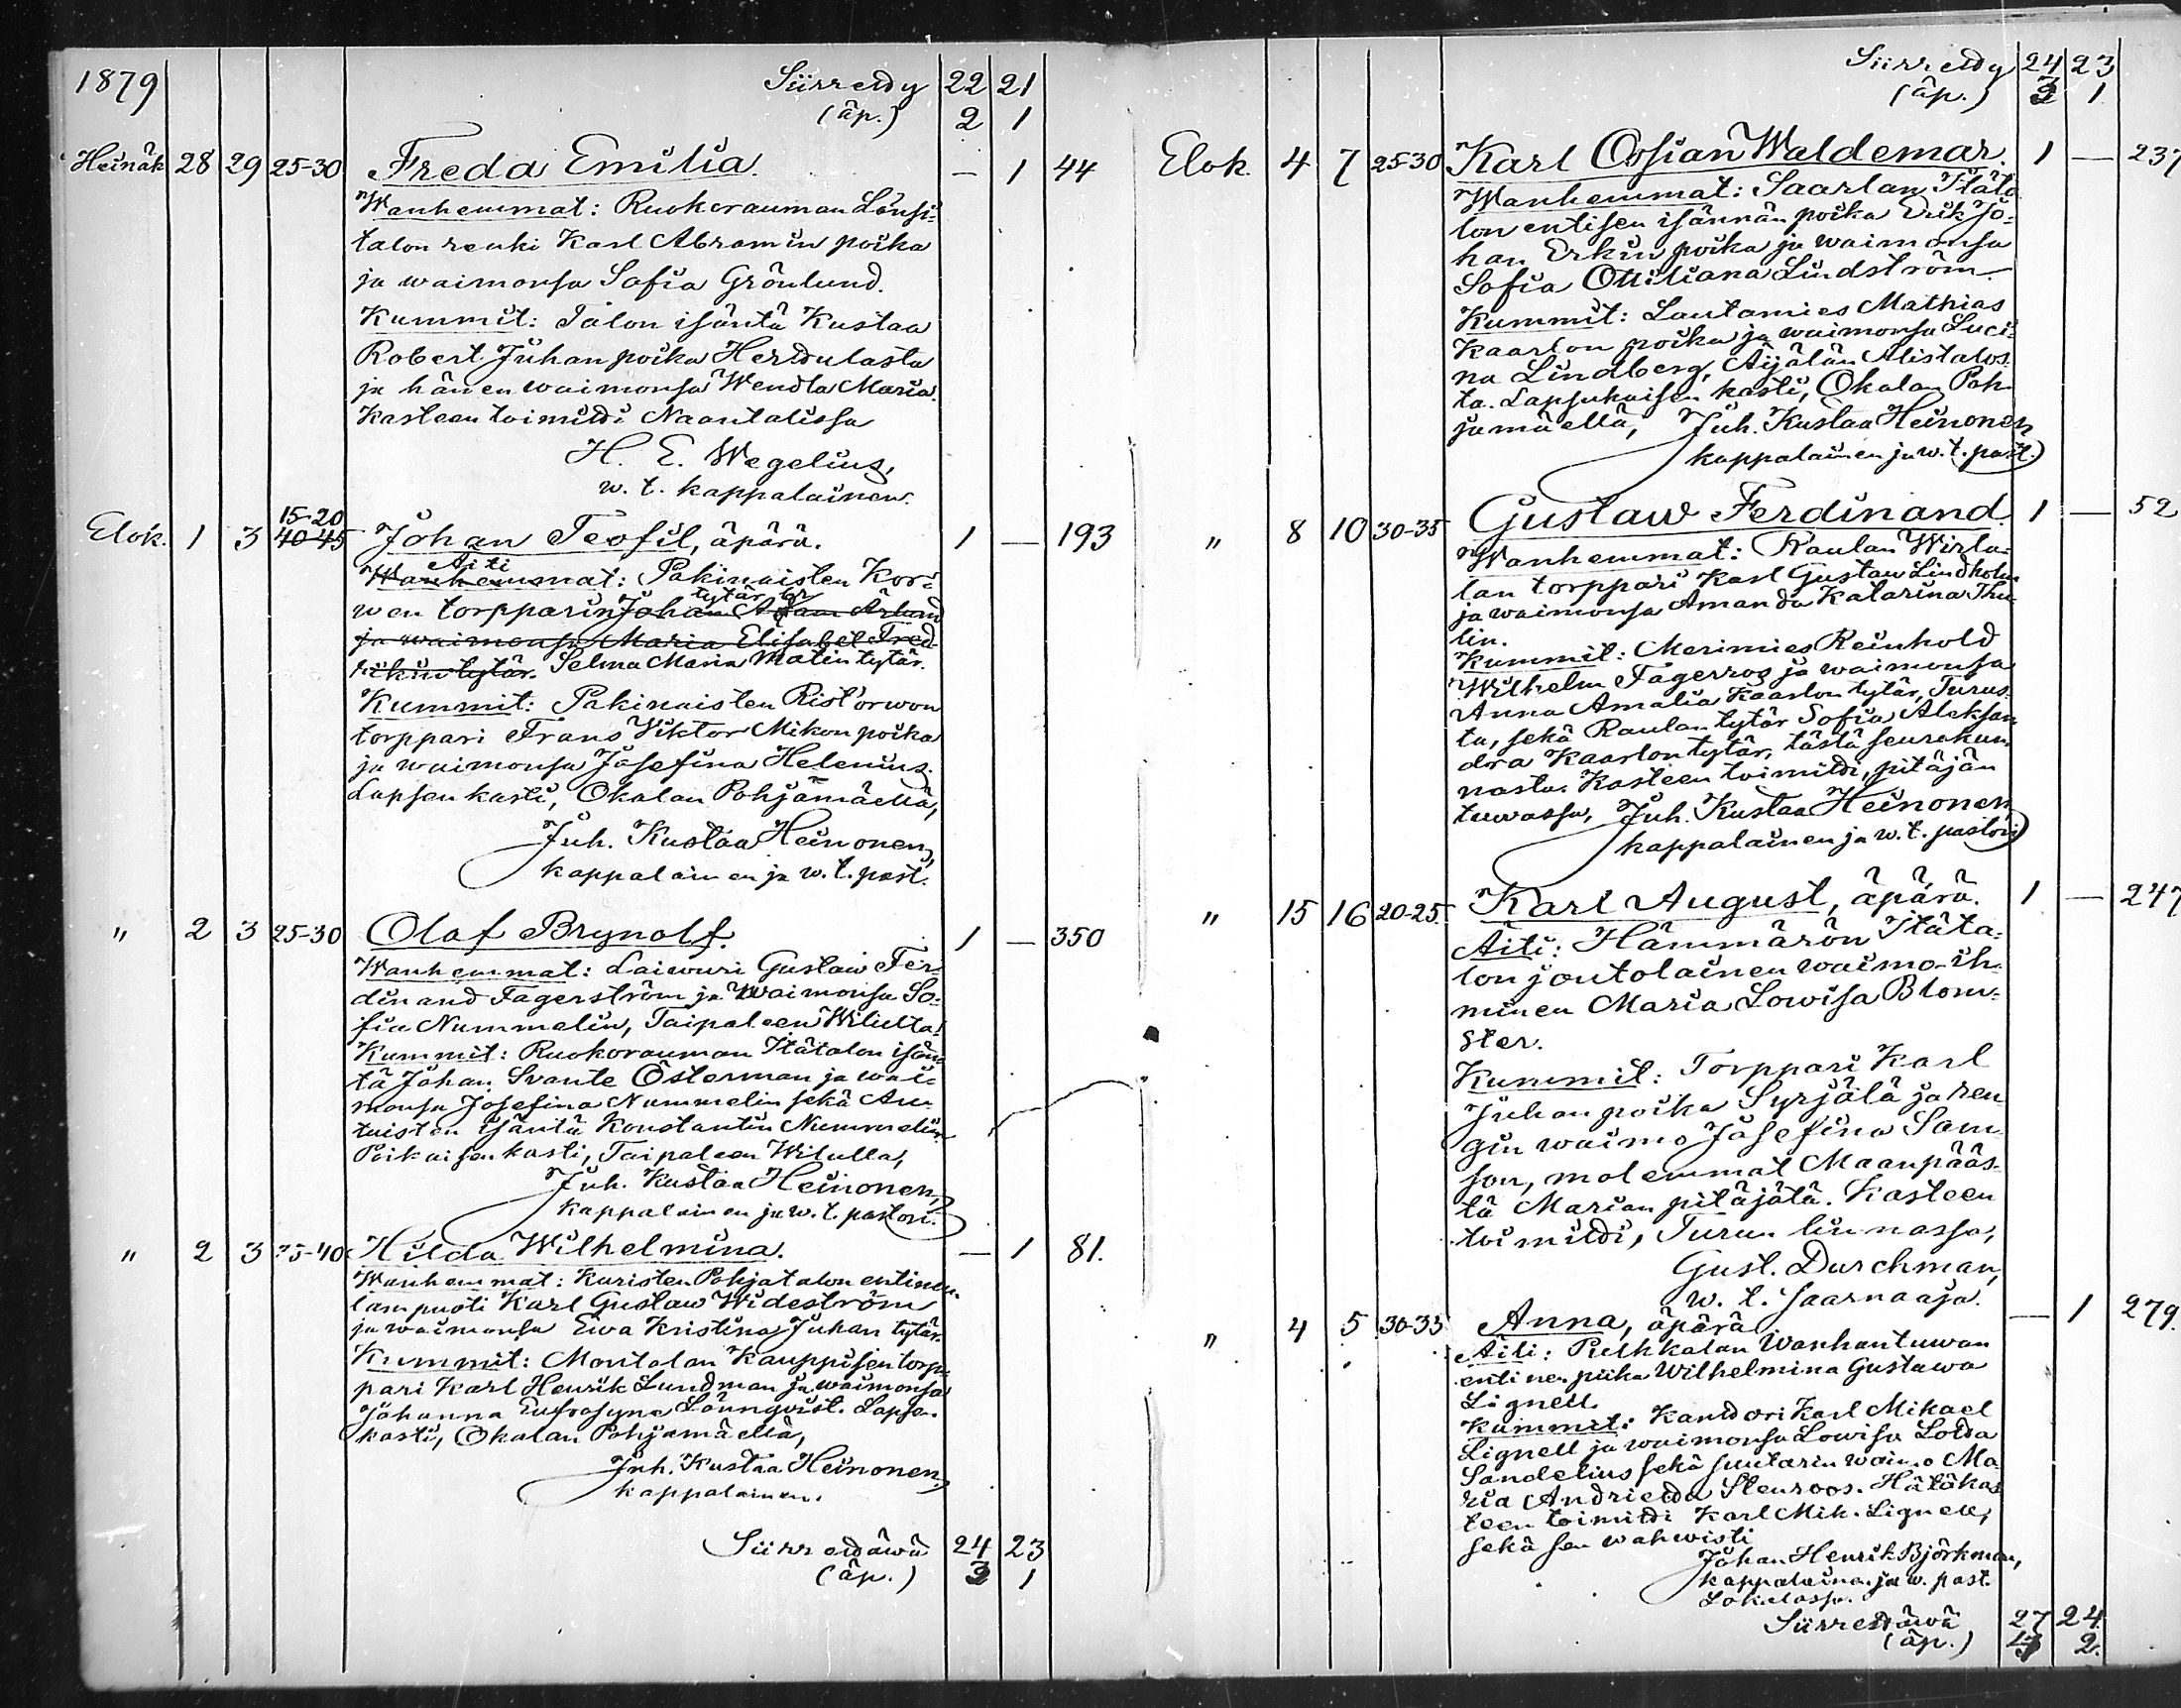 1879 Siirretty 22 21
(äp.) 2 1
Heinäk 28 29 25-30 Freda Emilia. — 1 44
Wanhemmat: Ruokorauman Länsi-
talon renki Karl Abramin poika
ja waimonsa Sofia Grönlund.
Kummit: Talon isäntä Kustaa
Robert Juhanpoika Herttulasta
ja hänen waimonsa Wendla Maria.
Kasteen toimitti Naantalissa
H. E. Wegelius,
w. t. kappalainen.
15-20
Elok. 1 3 40-45 Johan Teofil, äpärä. 1 — 193
Äiti
Wanhemmat: Pakinaisten Kor-
tytär
wen torpparin Johan Adam Ärland
ja waimonsa Maria Elisabet Fred-
rikintytär. Selma Maria Matintytär.
Kummit: Pakinaisten Rist'orwon
torppari Frans Viktor Mikonpoika
ja waimonsa Josefina Helenius.
Lapsen kasti, Okalan Pohjamäellä,
Juh. Kustaa Heinonen,
kappalainen ja w. t. past.
" 2 3 25-30 Olaf Brynolf. 1 — 350
Wanhemmat: Laiwuri Gustaw Fer-
dinand Fagerström ja Waimonsa So-
fia Nummelin, Taipaleen Wilulta.
Kummit: Ruokorauman Itätalon isän-
tä Johan Svante Österman ja wai-
monsa Josefina Nummelin sekä An-
taisten isäntä Konstantin Nummelin
Poikaisen kasti, Taipaleen Wilulla,
Juh. Kustaa Heinonen,
kappalainen ja w. t. pastori.
" 2 3 35-40 Hilda Wilhelmina. — 1 81.
Wanhemmat: Kuristen Pohjatalon entinen
lampuoti Karl Gustaw Wideström
ja waimonsa Ewa Kristina Juhan tytär.
Kummit: Montolan Kauppisen torp-
pari Karl Henrik Lundman ja waimonsa
Johanna Eufrosyne Lönnqvist. Lapsen
kasti, Okalan Pohjamäellä,
Juh. Kustaa Heinonen,
kappalainen.
Siirrettäwä 24 23
(äp.) 3 1
Siirretty 24 23
(äp.) 3 1
Elok. 4 7 25-30 Karl Ossian Waldemar. 1 — 237
Wanhemmat: Saarlan Itäta-
lon entisen isännän poika Erik Jo-
han Erkin poika ja waimonsa
Sofia Ottiliana Lindström.
Kummit: Lautamies Mathias
Kaarlon poika ja waimonsa Luci-
na Lindberg, Äijälän Alistalos-
ta. Lapsukaisen kasti, Okalan Poh-
jamäellä, Juh. Kustaa Heinonen
kappalainen ja w. t. past.
" 8 10 30-35 Gustaw Ferdinand. 1 — 52
Wanhemmat: Raulan Wirta-
lan torppari Karl Gustaw Lindholm
ja waimonsa Amanda Katarina Thu-
lin.
Kummit: Merimies Reinhold
Wilhelm Fagerros ja waimonsa
Anna Amalia Kaarlon tytär, Turus-
ta, sekä Raulan tytär Sofia Aleksan-
dra Kaarlon tytär, tästä seurakun-
nasta. Kasteen toimitti, pitäjän
tuwassa, Juh. Kustaa Heinonen,
kappalainen ja w. t. pastori
" 15 16 20-25. Karl August, äpärä. 1 — 247
Äiti: Hämmärön Itäta-
lon joutolainen waimo-ih-
minen Maria Lowisa Blom-
ster.
Kummit: Torppari Karl
Juhan poika Syrjälä ja ren-
gin waimo Josefina Sam-
son, molemmat Maanpääs-
tä Marian pitäjätä. Kasteen
toimitti, Turun linnassa,
Gust. Durchman,
w. t. saarnaaja.
" 4 5 30-35 Anna, äpärä — 1 279.
Äiti: Peihkalan Wanhantuwan
entinen piika Wilhelmina Gustawa
Lignell.
Kummit: Kanttori Karl Mikael
Lignell ja waimonsa Lowisa Lotta
Sandelius sekä suutarin waimo Ma-
ria Andrietta Stenroos. Hätäkas-
teen toimitti Karl Mik. Lignell,
sekä sen wahwisti
Johan Henrik Björkman,
kappalainen ja w. past.
Lokalassa.
Siirrettäwä 27 24.
(äp.) 2.